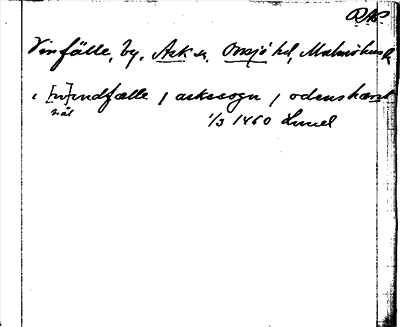 RAP
Vinfälle, by, Ask sn, Onsjö hd, Malmöhus l.
i [w]indfælle i askesogn i odenshæret
hål
1/3 1460 Lund